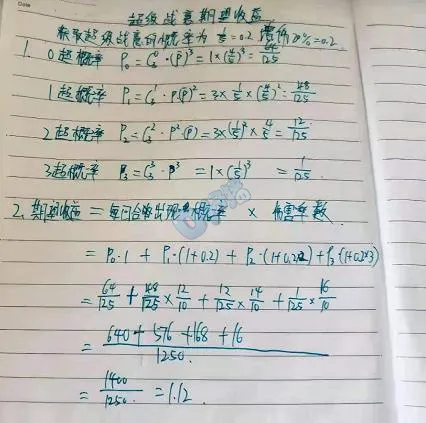 Date
超级战意期望收益
获取超级战意的概率为 1/5=0.2 增伤20%=0.2
1. 0超概率 P₀=C₃⁰·(P̄)³=1×(4/5)³=64/125
1超概率 P₁=C₃¹·P(P̄)²=3×1/5×(4/5)²=48/125
2超概率 P₂=C₃²·P²(P̄)=3×(1/5)²×4/5=12/125
3超概率 P₃=C₃³·P³=1×(1/5)³=1/125
2. 期望收益=每回合出现概率×伤害系数
=P₀·1+P₁·(1+0.2)+P₂·(1+0.2×2)+P₃·(1+0.2×3)
=64/125+48/125×12/10+12/125×14/10+1/125×16/10
=(640+576+168+16)/1250
=1400/1250=1.12